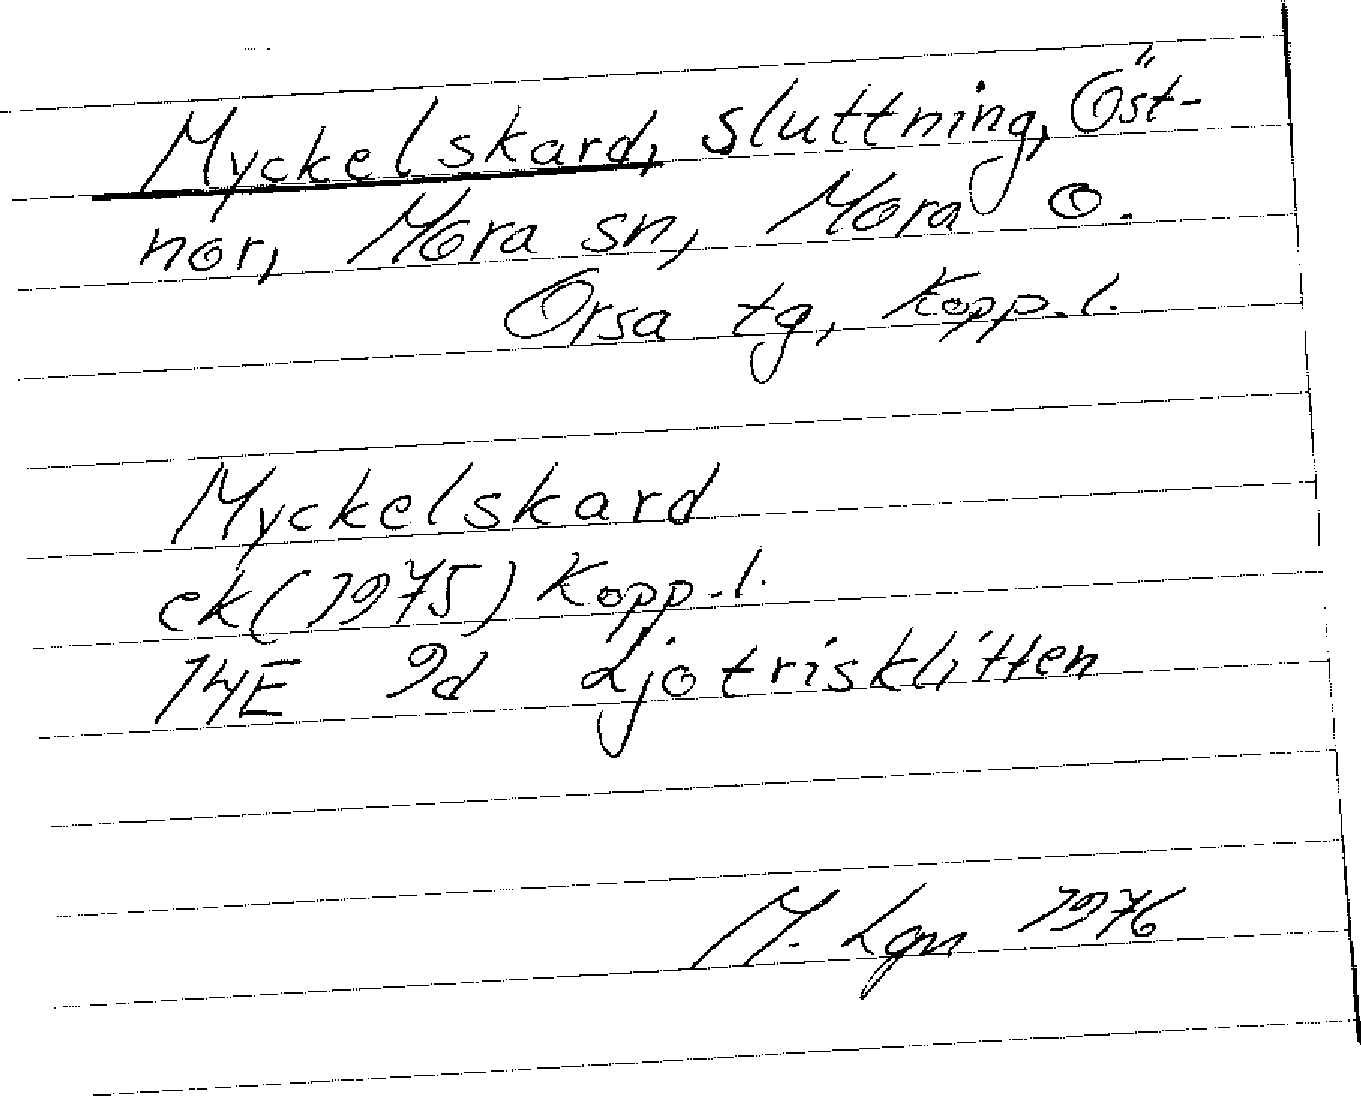 Myckelskard, sluttning, Öst-
nor, Mora sn, Mora o.
Orsa tg, Kopp. l.
Myckelskard
ek (1975) Kopp. l.
14E 9d Ljotrisklitten
M. Lgn 1976